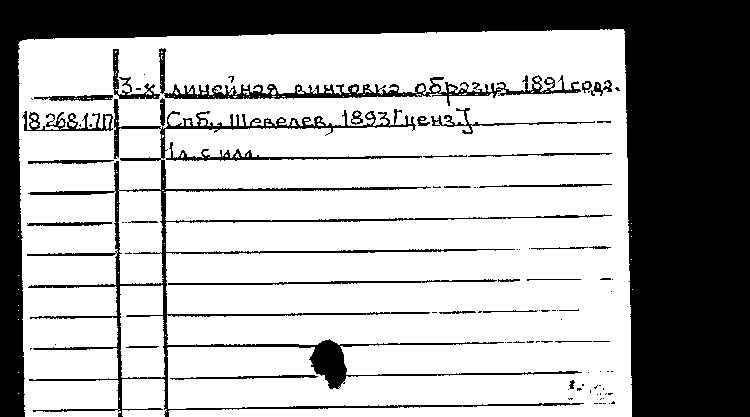 3-х линейная винтовка образца 1891 года.
18.268.1.7П Спб., Шевелев, 1893 [ценз.].
1 л. с илл.